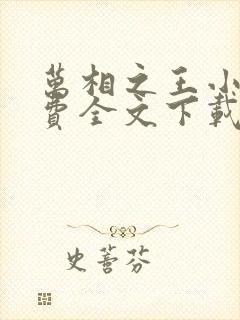 萬相之王小
費全文下載
史薈芬